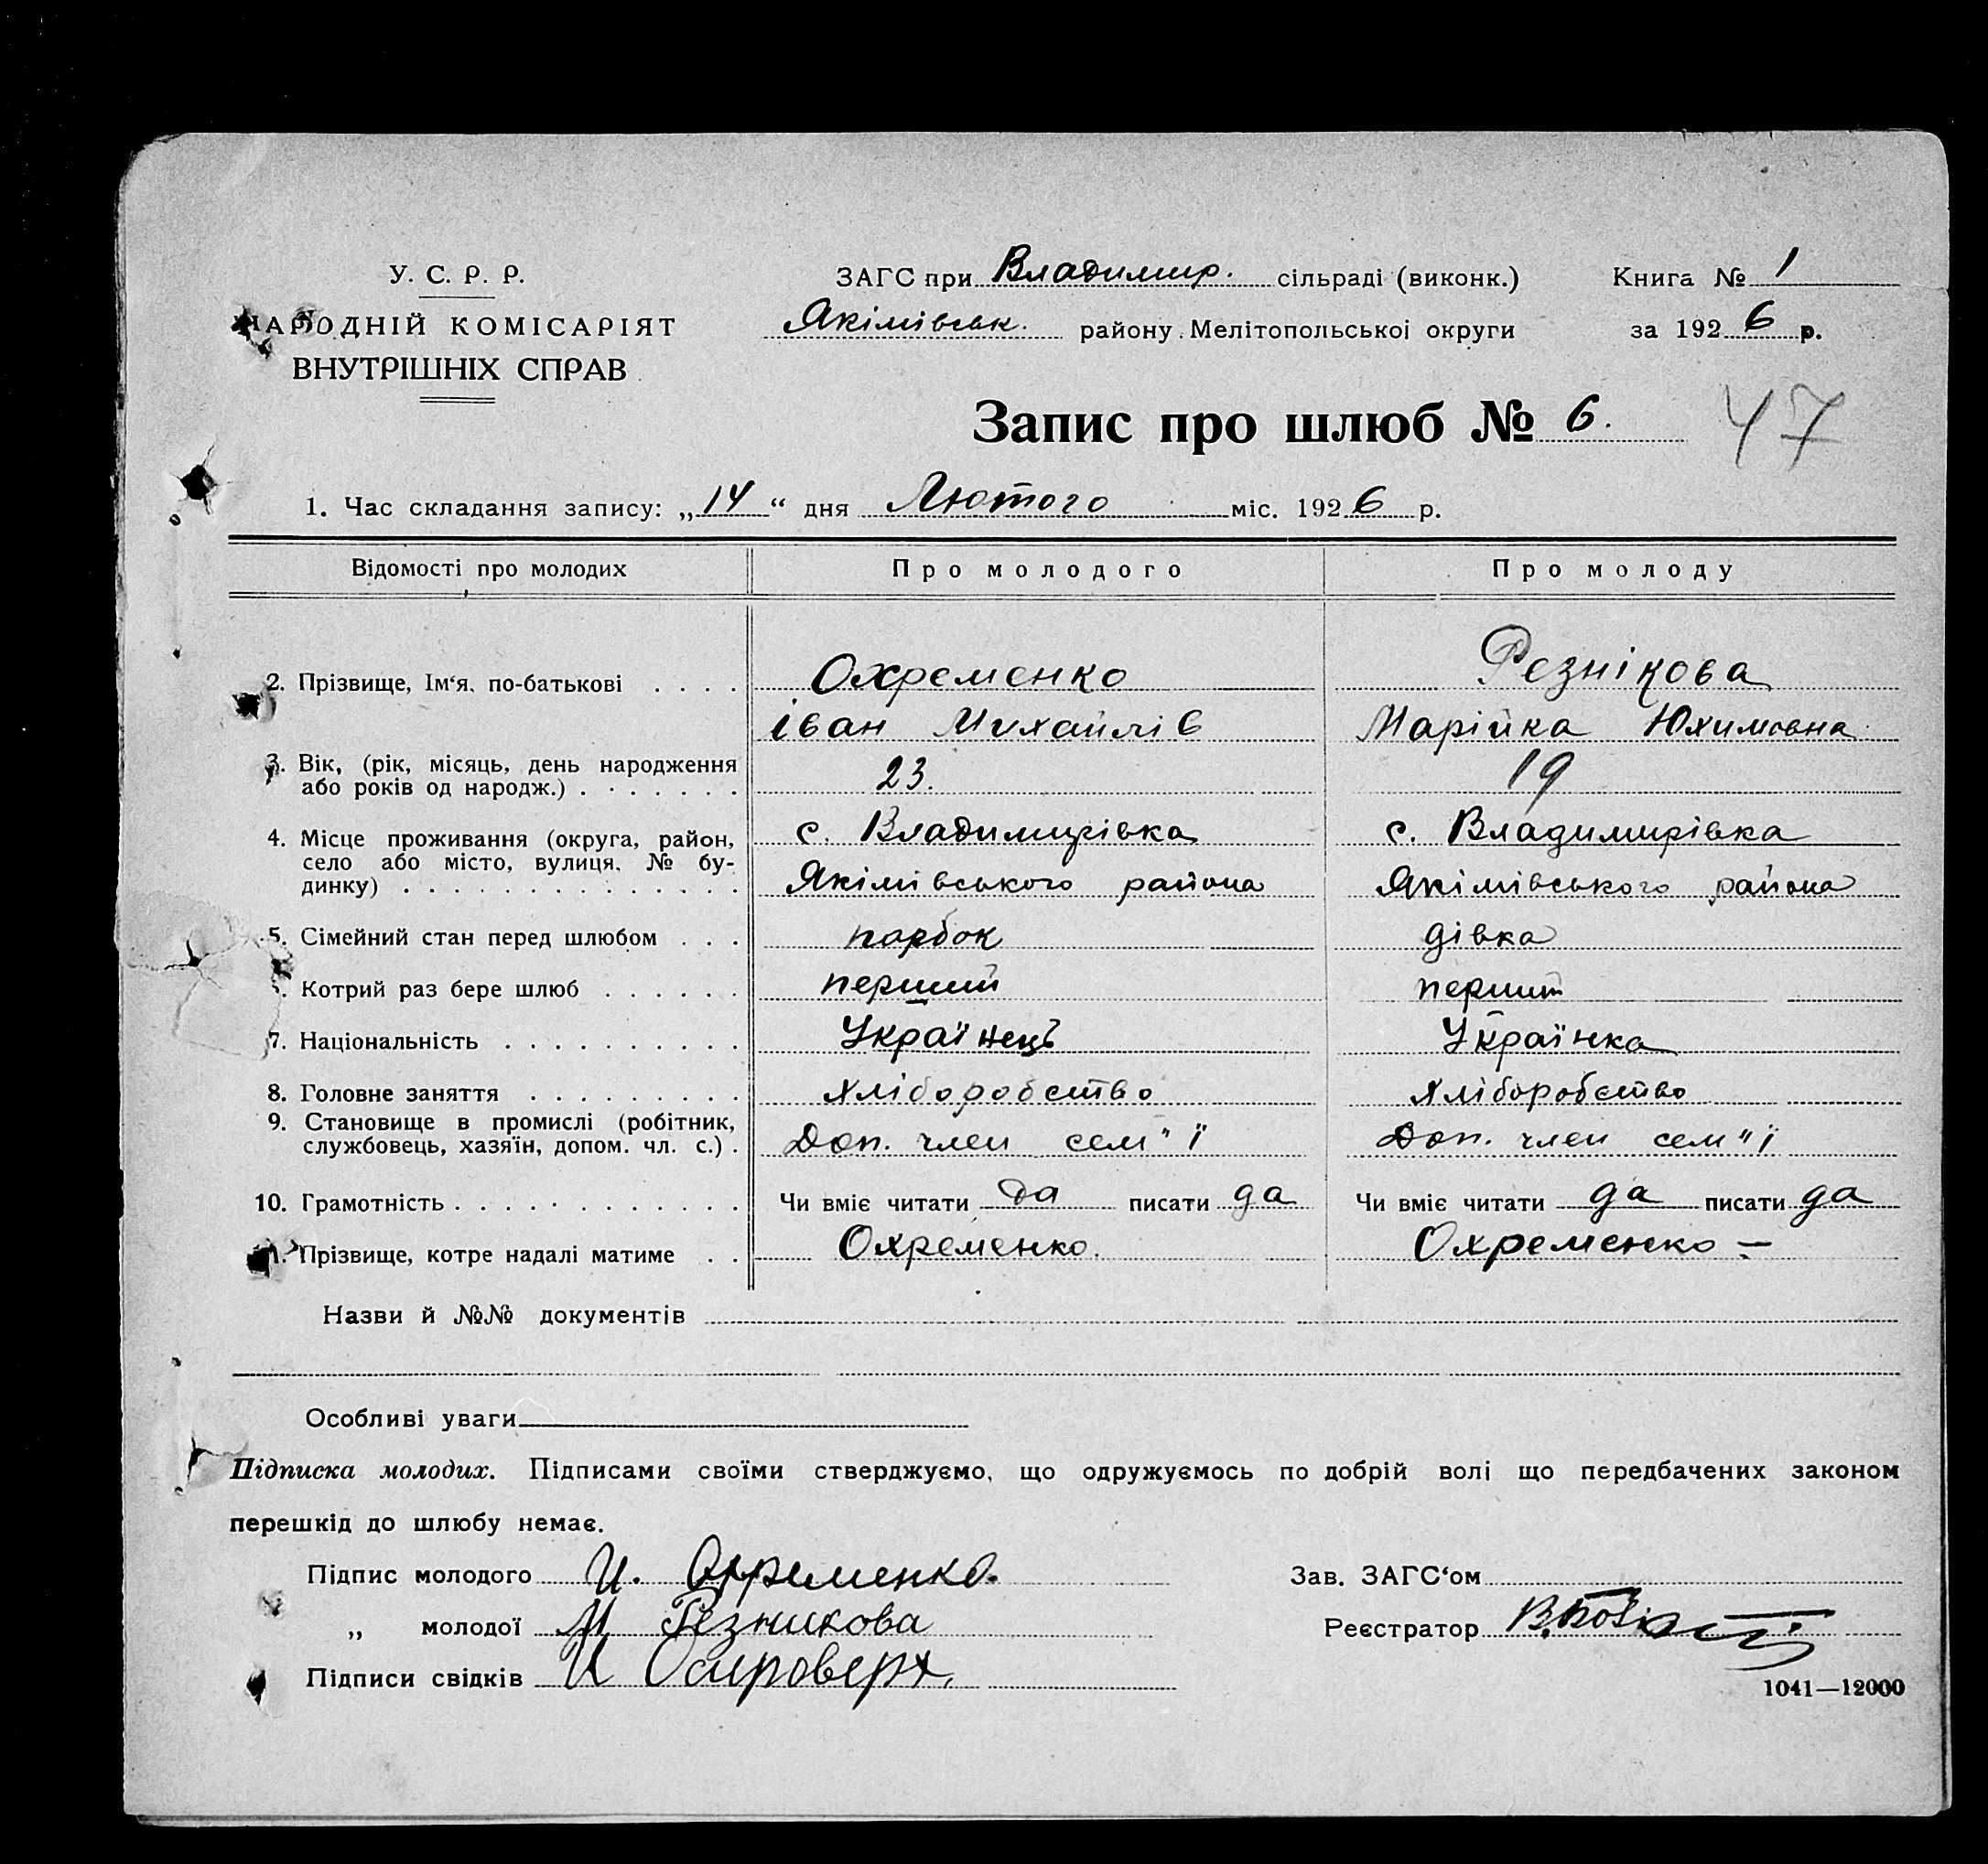 У. С. Р. Р.
НАРОДНІЙ КОМІСАРІЯТ
ВНУТРІШНІХ СПРАВ
ЗАГС при Владимир. сільраді (виконк.)
Якімівськ. району Мелітопольської округи
Книга № 1
за 1926 р.
Запис про шлюб № 6.
47
1. Час складання запису: „14“ дня Лютого міс. 1926 р.
Відомості про молодих Про молодого Про молоду
2. Прізвище, Ім‘я, по-батькові . . . . Охременко Резнікова
Іван Михайлів Марійка Юхимовна
3. Вік, (рік, місяць, день народження
або років од народж.) . . . . . . . 23. 19
4. Місце проживання (округа, район, с. Владимирівка с. Владимирівка
село або місто, вулиця, № бу-
динку) . . . . . . . . . . . . . . Якімівського района Якімівського района
5. Сімейний стан перед шлюбом . . . парбок дівка
6. Котрий раз бере шлюб . . . . . . перший перший
7. Національність . . . . . . . . . . Українець Українка
8. Головне заняття . . . . . . . . . хліборобство хліборобство
9. Становище в промислі (робітник,
службовець, хазяїн, допом. чл. с.) . Доп. член сем"ї Доп. член сем"ї
10. Грамотність . . . . . . . . . . . . Чи вміє читати да писати да Чи вміє читати да писати да
11. Прізвище, котре надалі матиме . . Охременко. Охременко –
Назви й №№ документів
Особливі уваги
Підписка молодих. Підписами своїми стверджуємо, що одружуємось по добрій волі що передбачених законом
перешкід до шлюбу немає.
Підпис молодого И. Охременко.
„ молодої М Резникова
Підписи свідків И
Зав. ЗАГС‘ом
Реєстратор
1041—12000